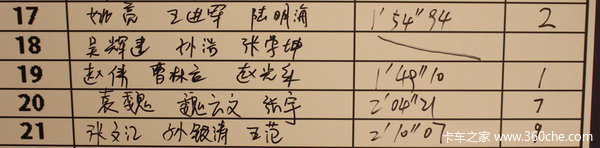 17 姚亮 王进军 陆明海 1'54"94 2
18 吴辉建 孙浩 张学坤
19 赵伟 曹林立 赵光军 1'49"10 1
20 袁魏 魏云文 张宇 2'04"21 7
21 张文江 孙银涛 王范 2'10"07
卡车之家 www.360che.com